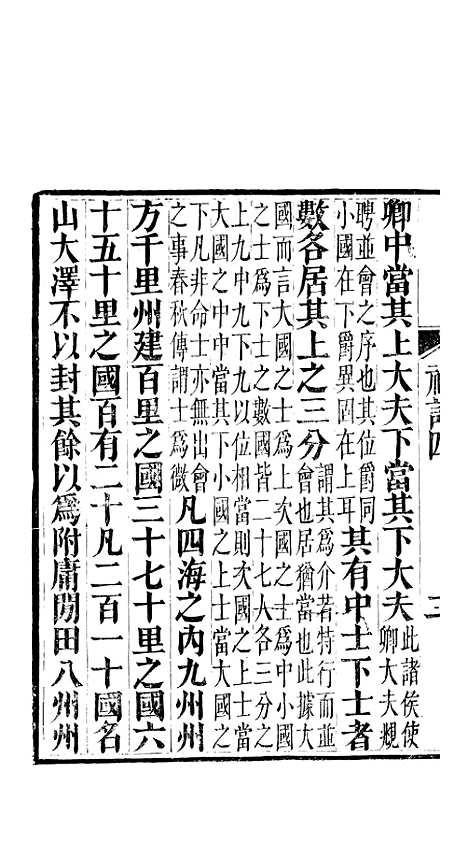 禮記四 三
卿中當其上大夫下當其下大夫此諸侯使
卿大夫覜
聘並會之序也其位爵同
小國在下爵異固在上耳其有中士下士者
數各居其上之三分謂其爲介若特行而並
會也居猶當也此據大
國而言大國之士爲上次國之士爲中小國
之士爲下士之數國皆二十七人各三分之
上九中九下九以位相當則次國之上士當
大國之中中當其下小國之上士當大國之
下凡非命士亦無出會
之事春秋傳謂士爲微凡四海之內九州州
方千里州建百里之國三十七十里之國六
十五十里之國百有二十凡二百一十國名
山大澤不以封其餘以爲附庸閒田八州州